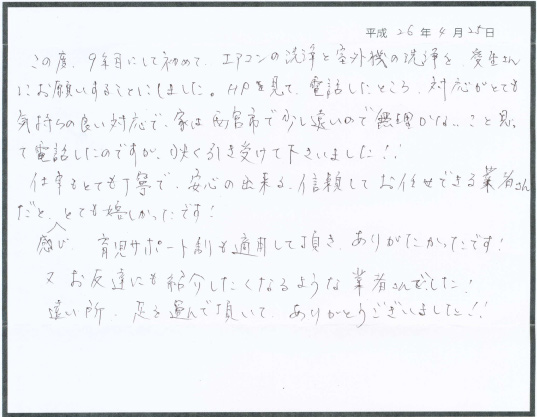 平成 26 年 4 月 25日
この度、9年目にして初めて、エアコンの洗浄と室外機の洗浄を、愛生さん
にお願いすることにしました。HPを見て、電話したところ、対応がとても
気持ちの良い対応で、家は西宮市で少し遠いので無理かな…と思っ
て電話したのですが、快く引き受けて下さいました!!
仕事もとても丁寧で、安心の出来る、信頼してお任せできる業者さん
だと、とても嬉しかったです!
感じ 育児サポート割も適用して頂き、ありがたかったです!
又お友達にも紹介したくなるような業者さんでした!
遠い所、足を運んで頂いて、ありがとうございました!!